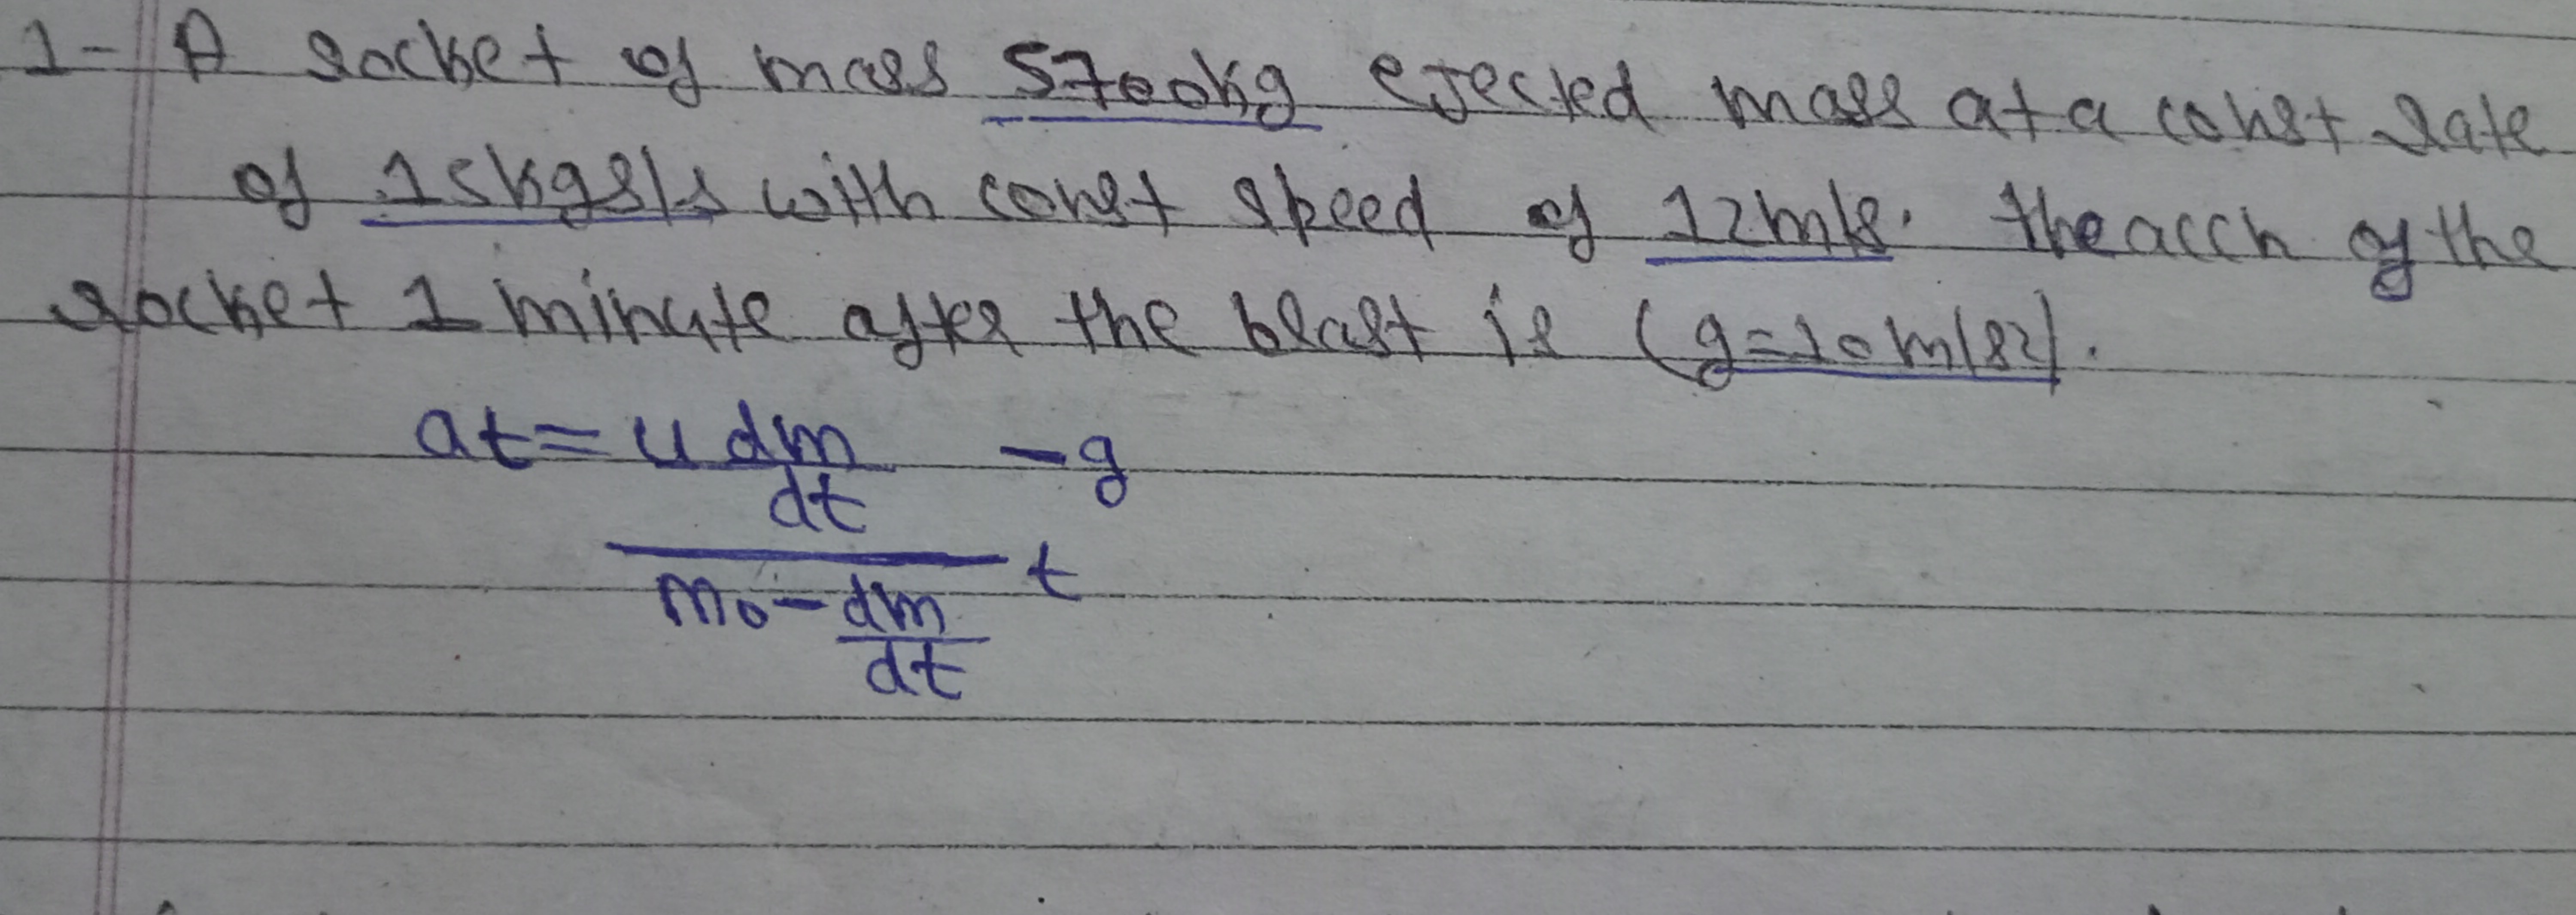 1- A rocket of mass 5700kg ejected mass at a const rate
of 15kgs/s with const speed of 12m/s. the accn of the
rocket 1 minute after the blast is (g=10m/s2).
at= u dm/dt -g
m0-dm/dt t